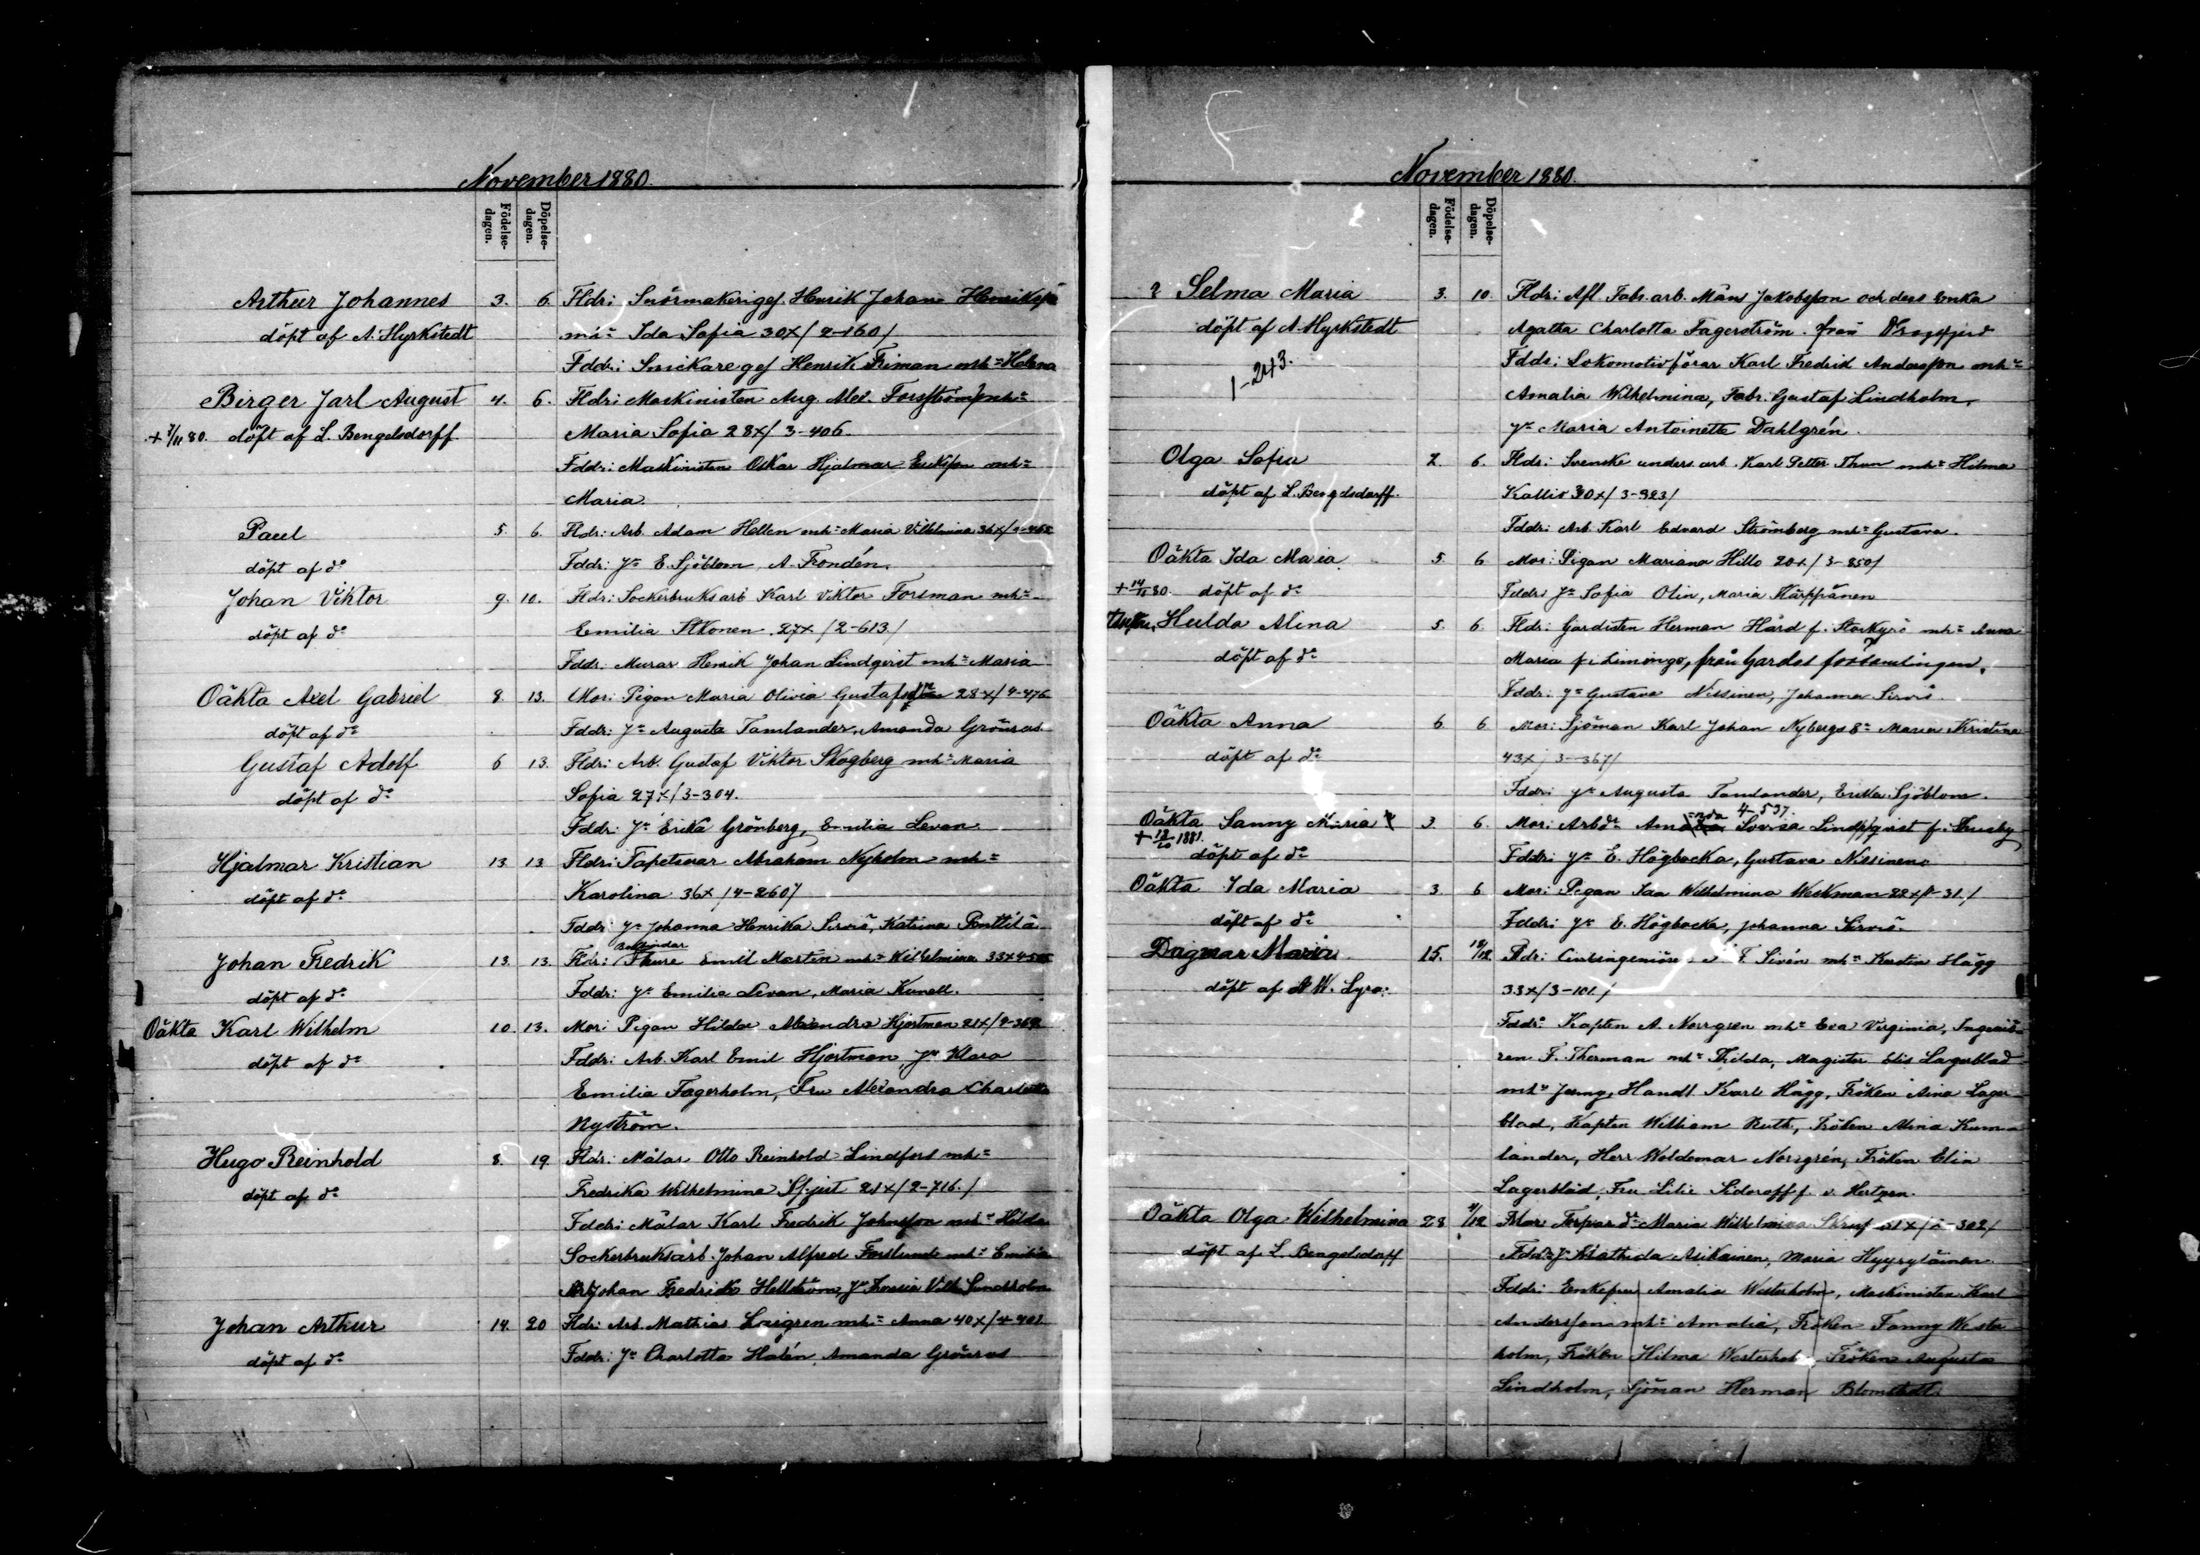 November 1880.
Födelse-dagen.
Döpelse-dagen.
Arthur Johannes 3. 6. Fldr: Snörmakerigef Henrik Johan
döpt af A. Hyrkstedt Ida Sofia 30x/2-160/
Fddr: Snickaregef Henrik Friman mh: Helena
Birger Jarl August 4. 6. Fldr: Maskinisten Aug. Alex. Forsström mh:
+ 7/11 80. döpt af L. Bengelsdorff Maria Sofia 28x/3-406.
Fddr: Maskinisten Oskar Hjalmar Eriksson mh:
Maria.
Paul 5. 6. Fldr: Arb. Adam Hellen mh: Maria Vilhelmina 36x/
döpt af do Fddr: Jn E. Sjöblom, A. Frondén.
Johan Viktor 9. 10. Fldr: Sockerbruksarb Karl Viktor Forsman mh:
döpt af do Emilia Itkonen. 27x/2-613/
Fddr. Murar Henrik Johan Lindqvist mh: Maria
Oäkta Axel Gabriel 8 13. Mor: Pigan Maria Olivia 28x/4-476
döpt af do Fddr: Jn Augusta Tamlander, Amanda Grönroos
Gustaf Adolf 6 13. Fldr: Arb. Gustaf Viktor Skogberg mh: Maria
döpt af do Sofia 27x/3-304.
Fddr: Jn Erika Grönberg, Emilia Levan
Hjalmar Kristian 13 13 Fldr: Tapetserar Abraham Nyholm mh:
döpt af do Karolina 36x/4-260/
Fddr: Jn Johanna Henrika Sirviö, Katrina Penttilä
Johan Fredrik 13. 13. Fldr: Thure Emil Martin mh: Wilhelmina 33x
döpt af do Fddr: Jn Emilia Levan, Maria Kunell.
Oäkta Karl Wilhelm 10. 13. Mor: Pigan Hilda Alexandra Hjortman 21x/
döpt af do Fddr: Arb. Karl Emil Hjortman, Jn Klara
Emilia Fagerholm, Fru Alexandra Charlotta
Nyström.
Hugo Reinhold 8. 19 Fldr: Målar Otto Reinhold Lindfors mh:
döpt af do Fredrika Wilhelmina 21x/2-716./
Fddr: Målar Karl Fredrik Johnsson mh: Hilda
Sockerbruksarb. Johan Alfred Forslund mh: Emilia
Johan Fredrik Hellström, Jn Lovisa Vilh. Lindholm
Johan Arthur 14. 20 Fldr: Arb. Mathias mh: Anna 40x/4-901
döpt af do Fddr: Jn Charlotta Halén, Amanda Grönroos
November 1880.
Födelse-dagen.
Döpelse-dagen.
? Selma Maria 3. 10. Fldr: Afl Fabr. arb. Måns Jakobsson och dess Enka
döpt af A. Hyrkstedt Agatha Charlotta Fagerström. från
1-243. Fddr: Lokomotivförar Karl Fredrik Andersson mh:
Amalia Wilhelmina, Fabr. Gustaf Lindholm,
Jn Maria Antoinette Dahlgrén.
Olga Sofia 2. 6. Fldr: Svenske unders. arb. Karl Petter Thun mh: Hilma
döpt af L. Bengelsdorff. Kallio 30x/3-923/
Fddr: Arb. Karl Edvard Strömberg mh: Gustava.
Oäkta Ida Maria 5. 6 Mor: Pigan Mariana Hillo 20x/3-850/
+ 14/11 80. döpt af do Fddr: Jn Sofia Olin, Maria Kärppänen
Hulda Alina 5. 6. Fldr: Gardisten Herman Hård f. Storkyrö mh: Anna
döpt af do Maria f. i Limingo, från Gardes församlingen.
Fddr: Jn Gustava Nissinen, Johanna Sirviö.
Oäkta Anna 6 6 Mor: Sjöman Karl Johan Nybergs Ea Maria Kristina
döpt af do 43x/3-367/
Fddr: Jn Augusta Tamlander, Erika Sjöblom.
4-597.
Oäkta Sanny Maria 3. 6. Mor: Arbda Lovisa Lindqvist f. Thusby
+ 12/10 1881.
döpt af do Fddr: Jn E. Högbacka, Gustava Nissinen
Oäkta Ida Maria 3. 6 Mor: Pigan Ida Wilhelmina Weckman
döpt af do Fddr: Jn E. Högbacka, Johanna Sirviö.
Dagmar Maria 15. 18/12. Fldr: Civilingeniören F. Sivén mh: Kerstin Hägg
döpt af A W. Lyra. 33x/3-101./
Fddr: Kapten A. Norrgren mh: Eva Virginia, Ingeniö-
ren F. Therman mh: Thilda, Magister Elis Lagerblad
mh: Jenny, Handl. Karl Hägg, Fröken Aina Lager
blad, Kapten William Ruth, Fröken Alina Kuma
lander, Herr Woldemar Norrgrén, Fröken Elin
Lagerblad, Fru Lilie Sidoroff f. v. Hertzen.
Oäkta Olga Wilhelmina 28 /12 Mor Maria Wilhelmina 302/
döpt af L. Bengelsdorff Fddr: Jn Mathilda Asikainen, Maria Hyyryläinen.
Fddr: Enkefru Amalia Westerholm, Maskinisten Karl
Andersson mh: Amalia, Fröken Fanny Wester
holm, Fröken Hilma Westerholm, Fröken Augusta
Lindholm, Sjöman Herman Blomstedt.